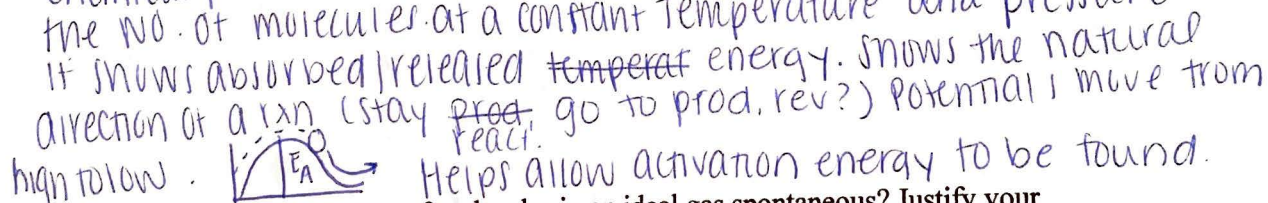 the No. of molecules at a constant temperature and
It shows absorbed/released temperat energy. Shows the natural
direction of a rxn (stay prod, react. go to prod, rev?) Potential, move from
high to low. EA Helps allow activation energy to be found.
ideal gas spontaneous? Justify your